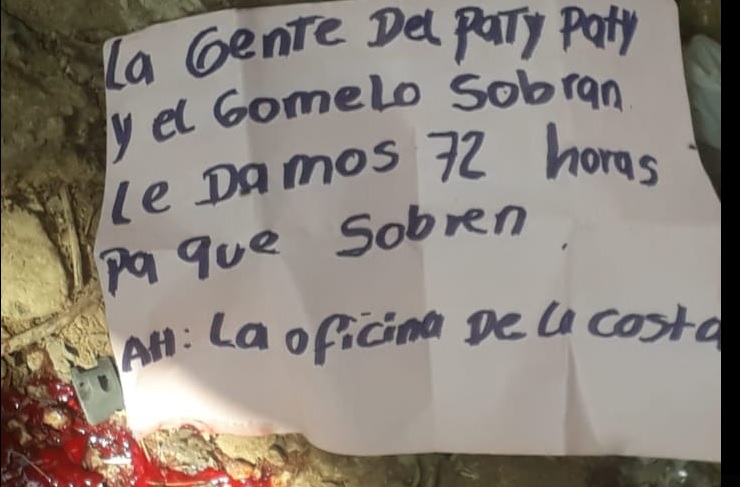 La Gente Del Paty Paty
y el Gomelo Sobran
le Damos 72 horas
pa que Sobren.
Att: La oficina De la costa